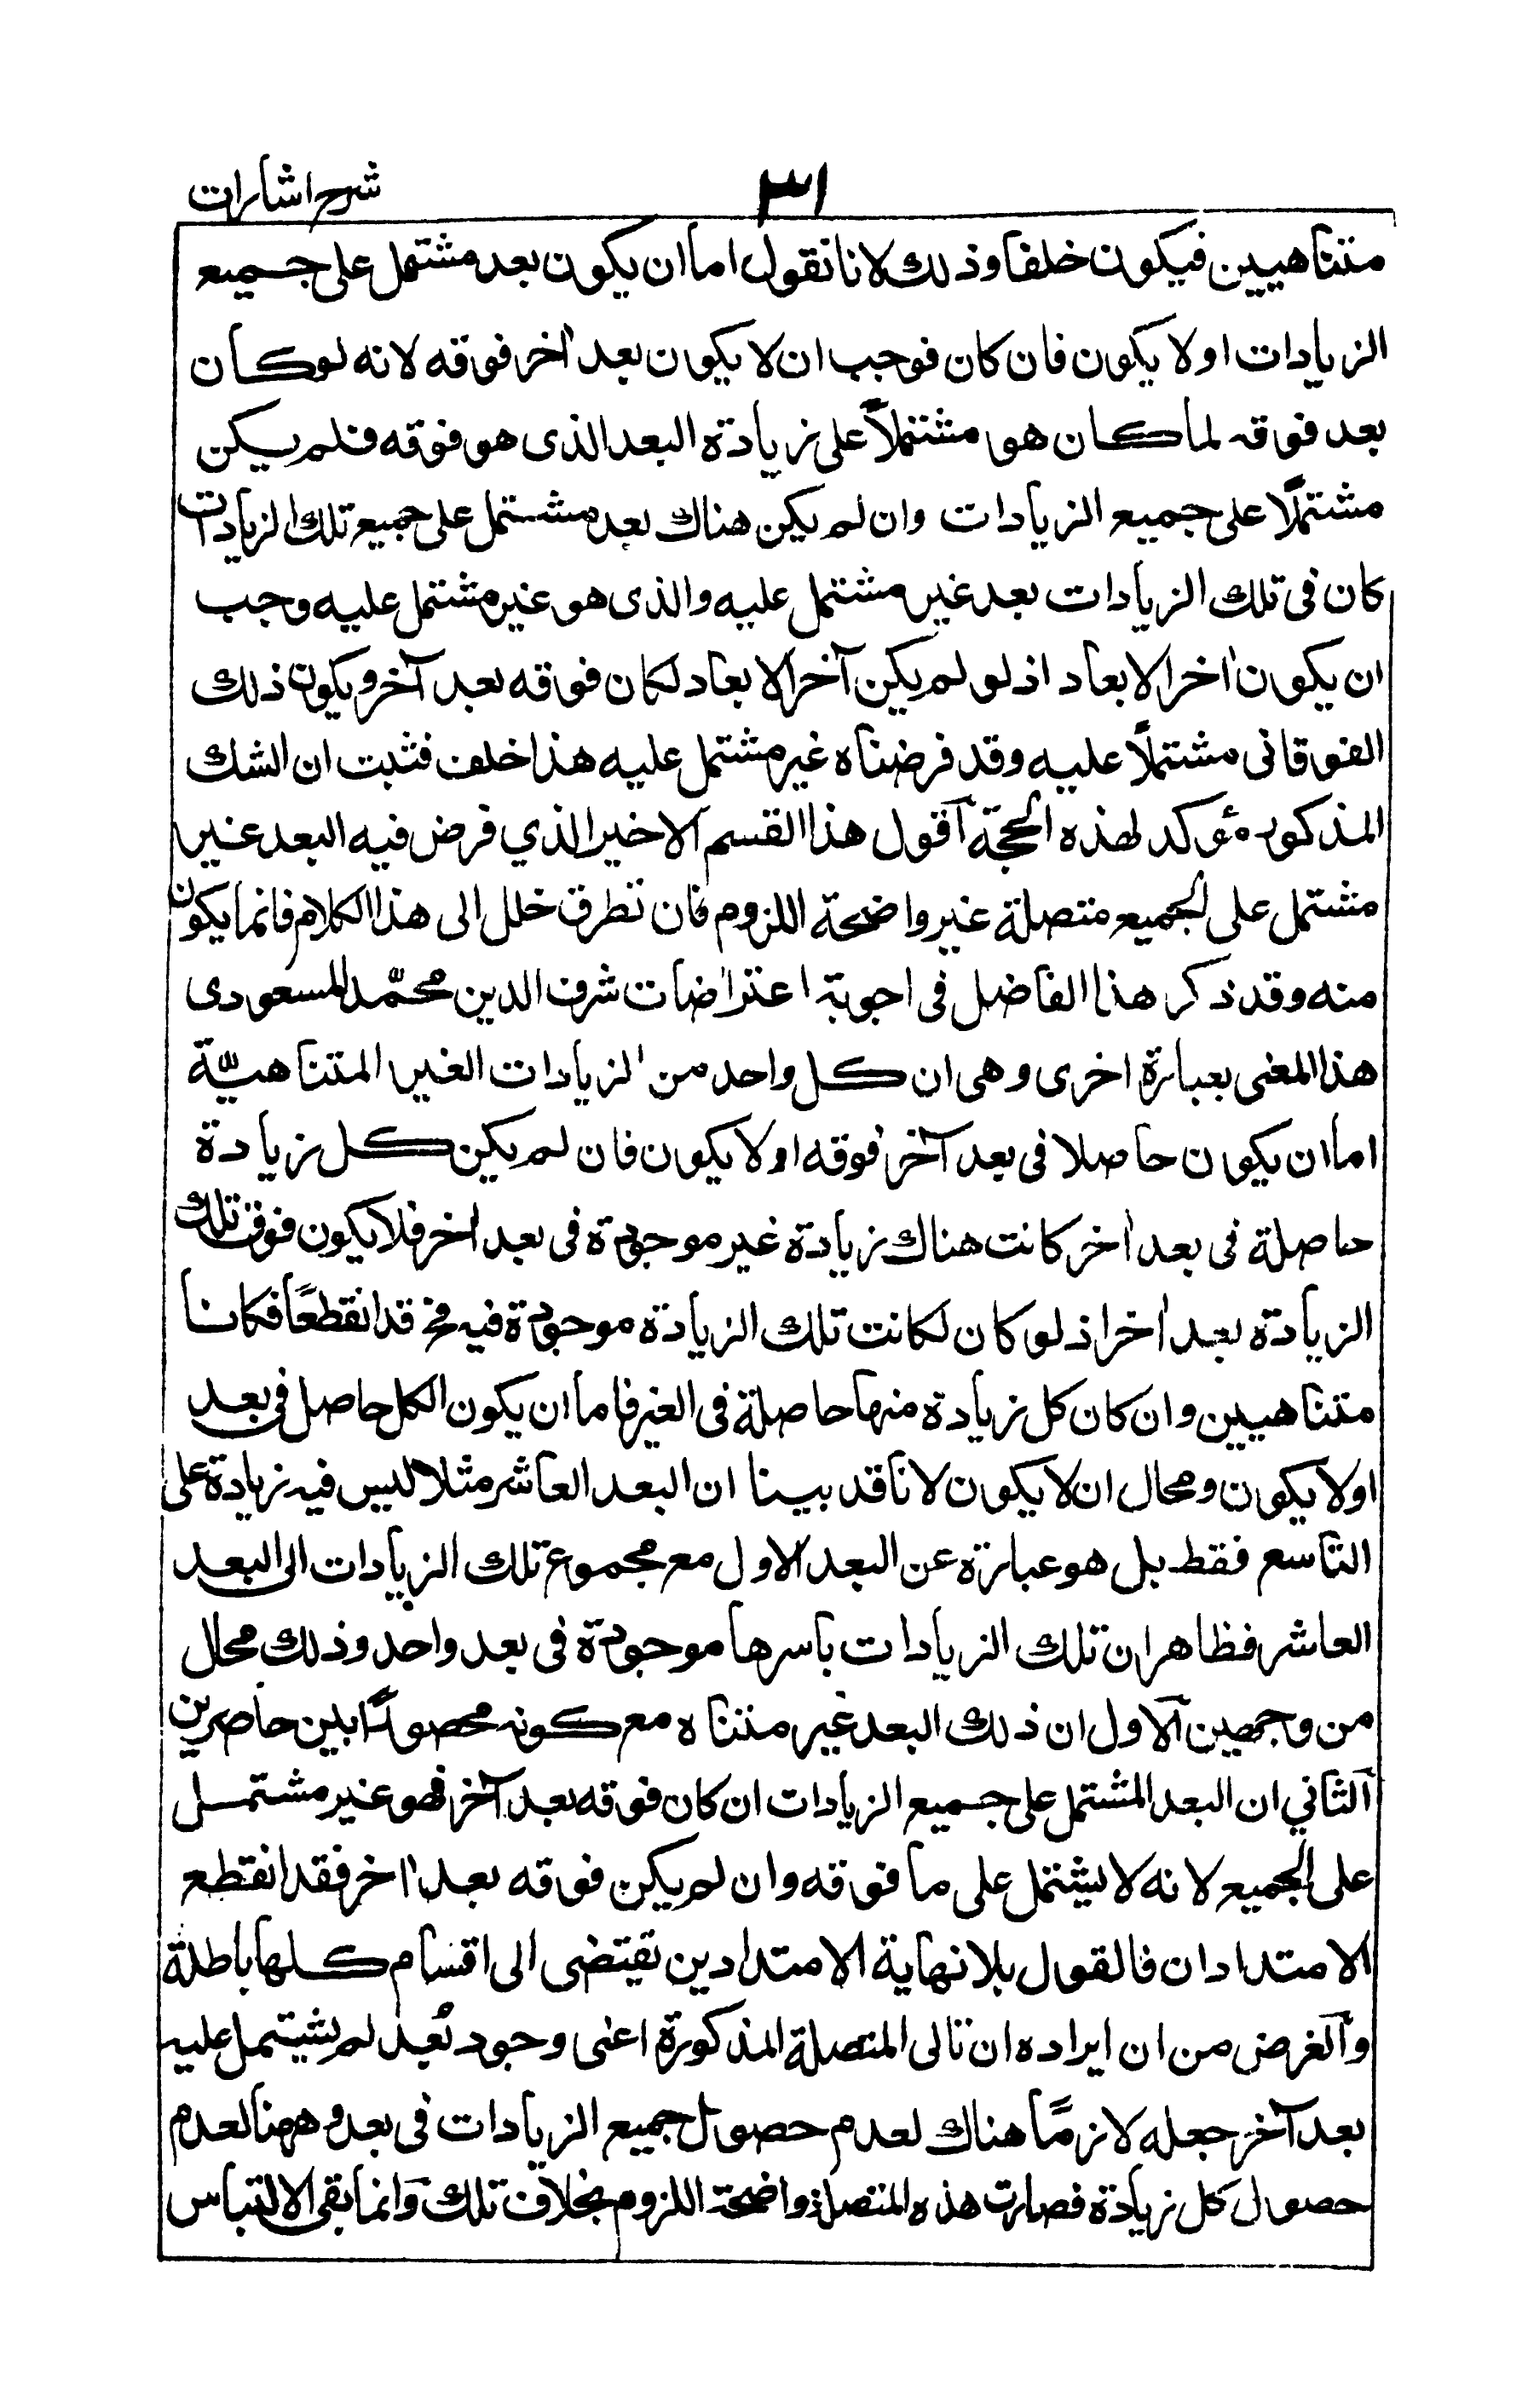 شرح اشارات
٣١
متناهيين فيكون خلفا وذلك لانا نقول اما ان يكون بعد مشتمل على جميع
الزيادات اولا يكون فان كان فوجب ان لا يكون بعد اٰخر فوقه لانه لوكان
بعد فوقه لما كان هو مشتملاً على زيادة البعد الذى هو فوقه فلم يكن
مشتملًا على جميع الزيادات وان لم يكن هناك بعد مشتمل على جميع تلك الزيادات
كان فى تلك الزيادات بعد غير مشتمل عليه والذى هو غير مشتمل عليه وجب
ان يكون اٰخر الابعاد اذ لو لم يكن آخر الابعاد لكان فوقه بعد آخر ويكون ذلك
الفوقانى مشتملًا عليه وقد فرضناه غير مشتمل عليه هذا خلف فثبت ان الشك
المذكور مؤكد لهذه الحجّة آقول هذا القسم الاخير الذي فرض فيه البعد غير
مشتمل على الجميع متصلة غير واضحة اللزوم فان تطرق خلل الى هذا الكلام فانما يكون
منه وقد ذكر هذا الفاضل فى اجوبة اعتراضات شرف الدين محمّد المسعودى
هذا المعنى بعبارة اخرى وهى ان كل واحد من الزيادات الغير المتناهيّة
اما ان يكون حاصلا فى بعد آخر فوقه اولا يكون فان لم يكن كل زيادة
حاصلة فى بعد اٰخر كانت هناك زيادة غير موجودة فى بعد اٰخر فلا يكون فوق تلك
الزيادة بعد اٰخر اذ لو كان لكانت تلك الزيادة موجودة فيه فح قد انقطعًا فكانا
متناهيين وان كان كل زيادة منها حاصلة فى الغير فاما ان يكون الكل حاصل فى بعد
اولا يكون ومحال ان لا يكون لانا قد بينا ان البعد العاشر مثلا ليس فيه زيادة على
التاسع فقط بل هو عبارة عن البعد الاول مع مجموع تلك الزيادات الى البعد
العاشر فظاهر ان تلك الزيادات باسرها موجودة فى بعد واحد وذلك محال
من وجهين آلاول ان ذلك البعد غير متناه مع كونه محصورًا بين حاصرين
آلثاني ان البعد المشتمل على جميع الزيادات ان كان فوقه بعد آخر فهو غير مشتمل
على الجميع لانه لا يشتمل على ما فوقه وان لم يكن فوقه بعد اٰخر فقد انقطع
الامتدادان فالقول بلا نهاية الامتدادين تقتضى الى اقسام كلها باطلة
وآلغرض من ان ايراده ان تالى المتصلة المذكورة اعنى وجود بُعد لم يشتمل عليه
بعد آخر جعله لازمًا هناك لعدم حصول جميع الزيادات فى بعد وههنا لعدم
حصول كل زيادة فصارت هذه المتصلة واضحة اللزوم بخلاف تلك وآنما بقى الالتباس